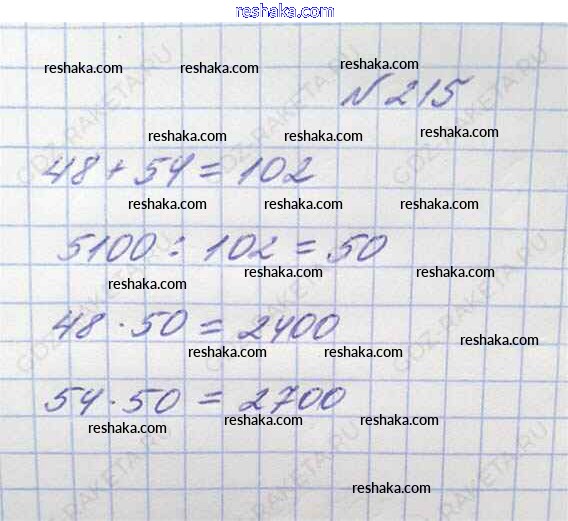 reshaka.com
reshaka.com reshaka.com reshaka.com
N 215
reshaka.com reshaka.com reshaka.com
48 + 54 = 102
reshaka.com reshaka.com reshaka.com
5100 : 102 = 50
reshaka.com reshaka.com reshaka.com
48 · 50 = 2400
reshaka.com reshaka.com reshaka.com
54 · 50 = 2700
reshaka.com reshaka.com reshaka.com
reshaka.com
GDZ-RAKETA.RU
GDZ-RAKETA.RU
GDZ-RAKETA.RU
GDZ-RAKETA.RU
GDZ-RAKETA.RU
GDZ-RAKETA.RU